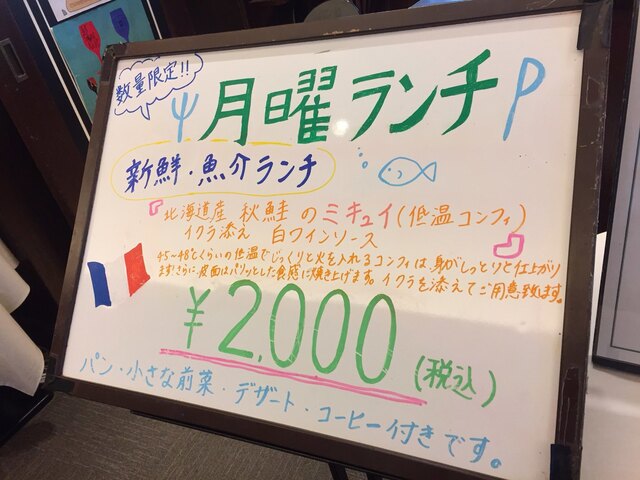 数量限定!!
月曜ランチ
新鮮・魚介ランチ
『北海道産 秋鮭 のミキュイ(低温コンフィ)
イクラ添え 白ワインソース』
45~48℃くらいの低温でじっくりと火を入れるコンフィは身がしっとりと仕上がり
ます!さらに、皮面はパリッとした食感に焼き上げます。イクラを添えてご用意致します。
¥2.000(税込)
パン・小さな前菜・デザート・コーヒー付きです。